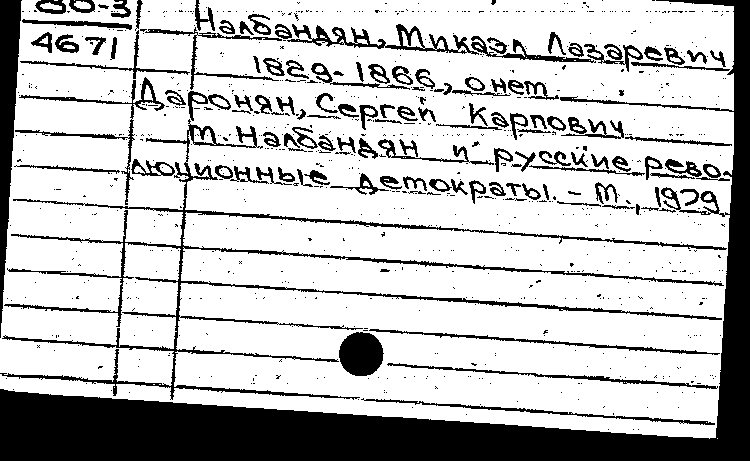 80-3
4671
Налбандян, Микаэл Лазаревич,
1829-1866, о нем
Даронян, Сергей Карпович
М. Налбандян и русские рево-
люционные демократы. - М., 1979